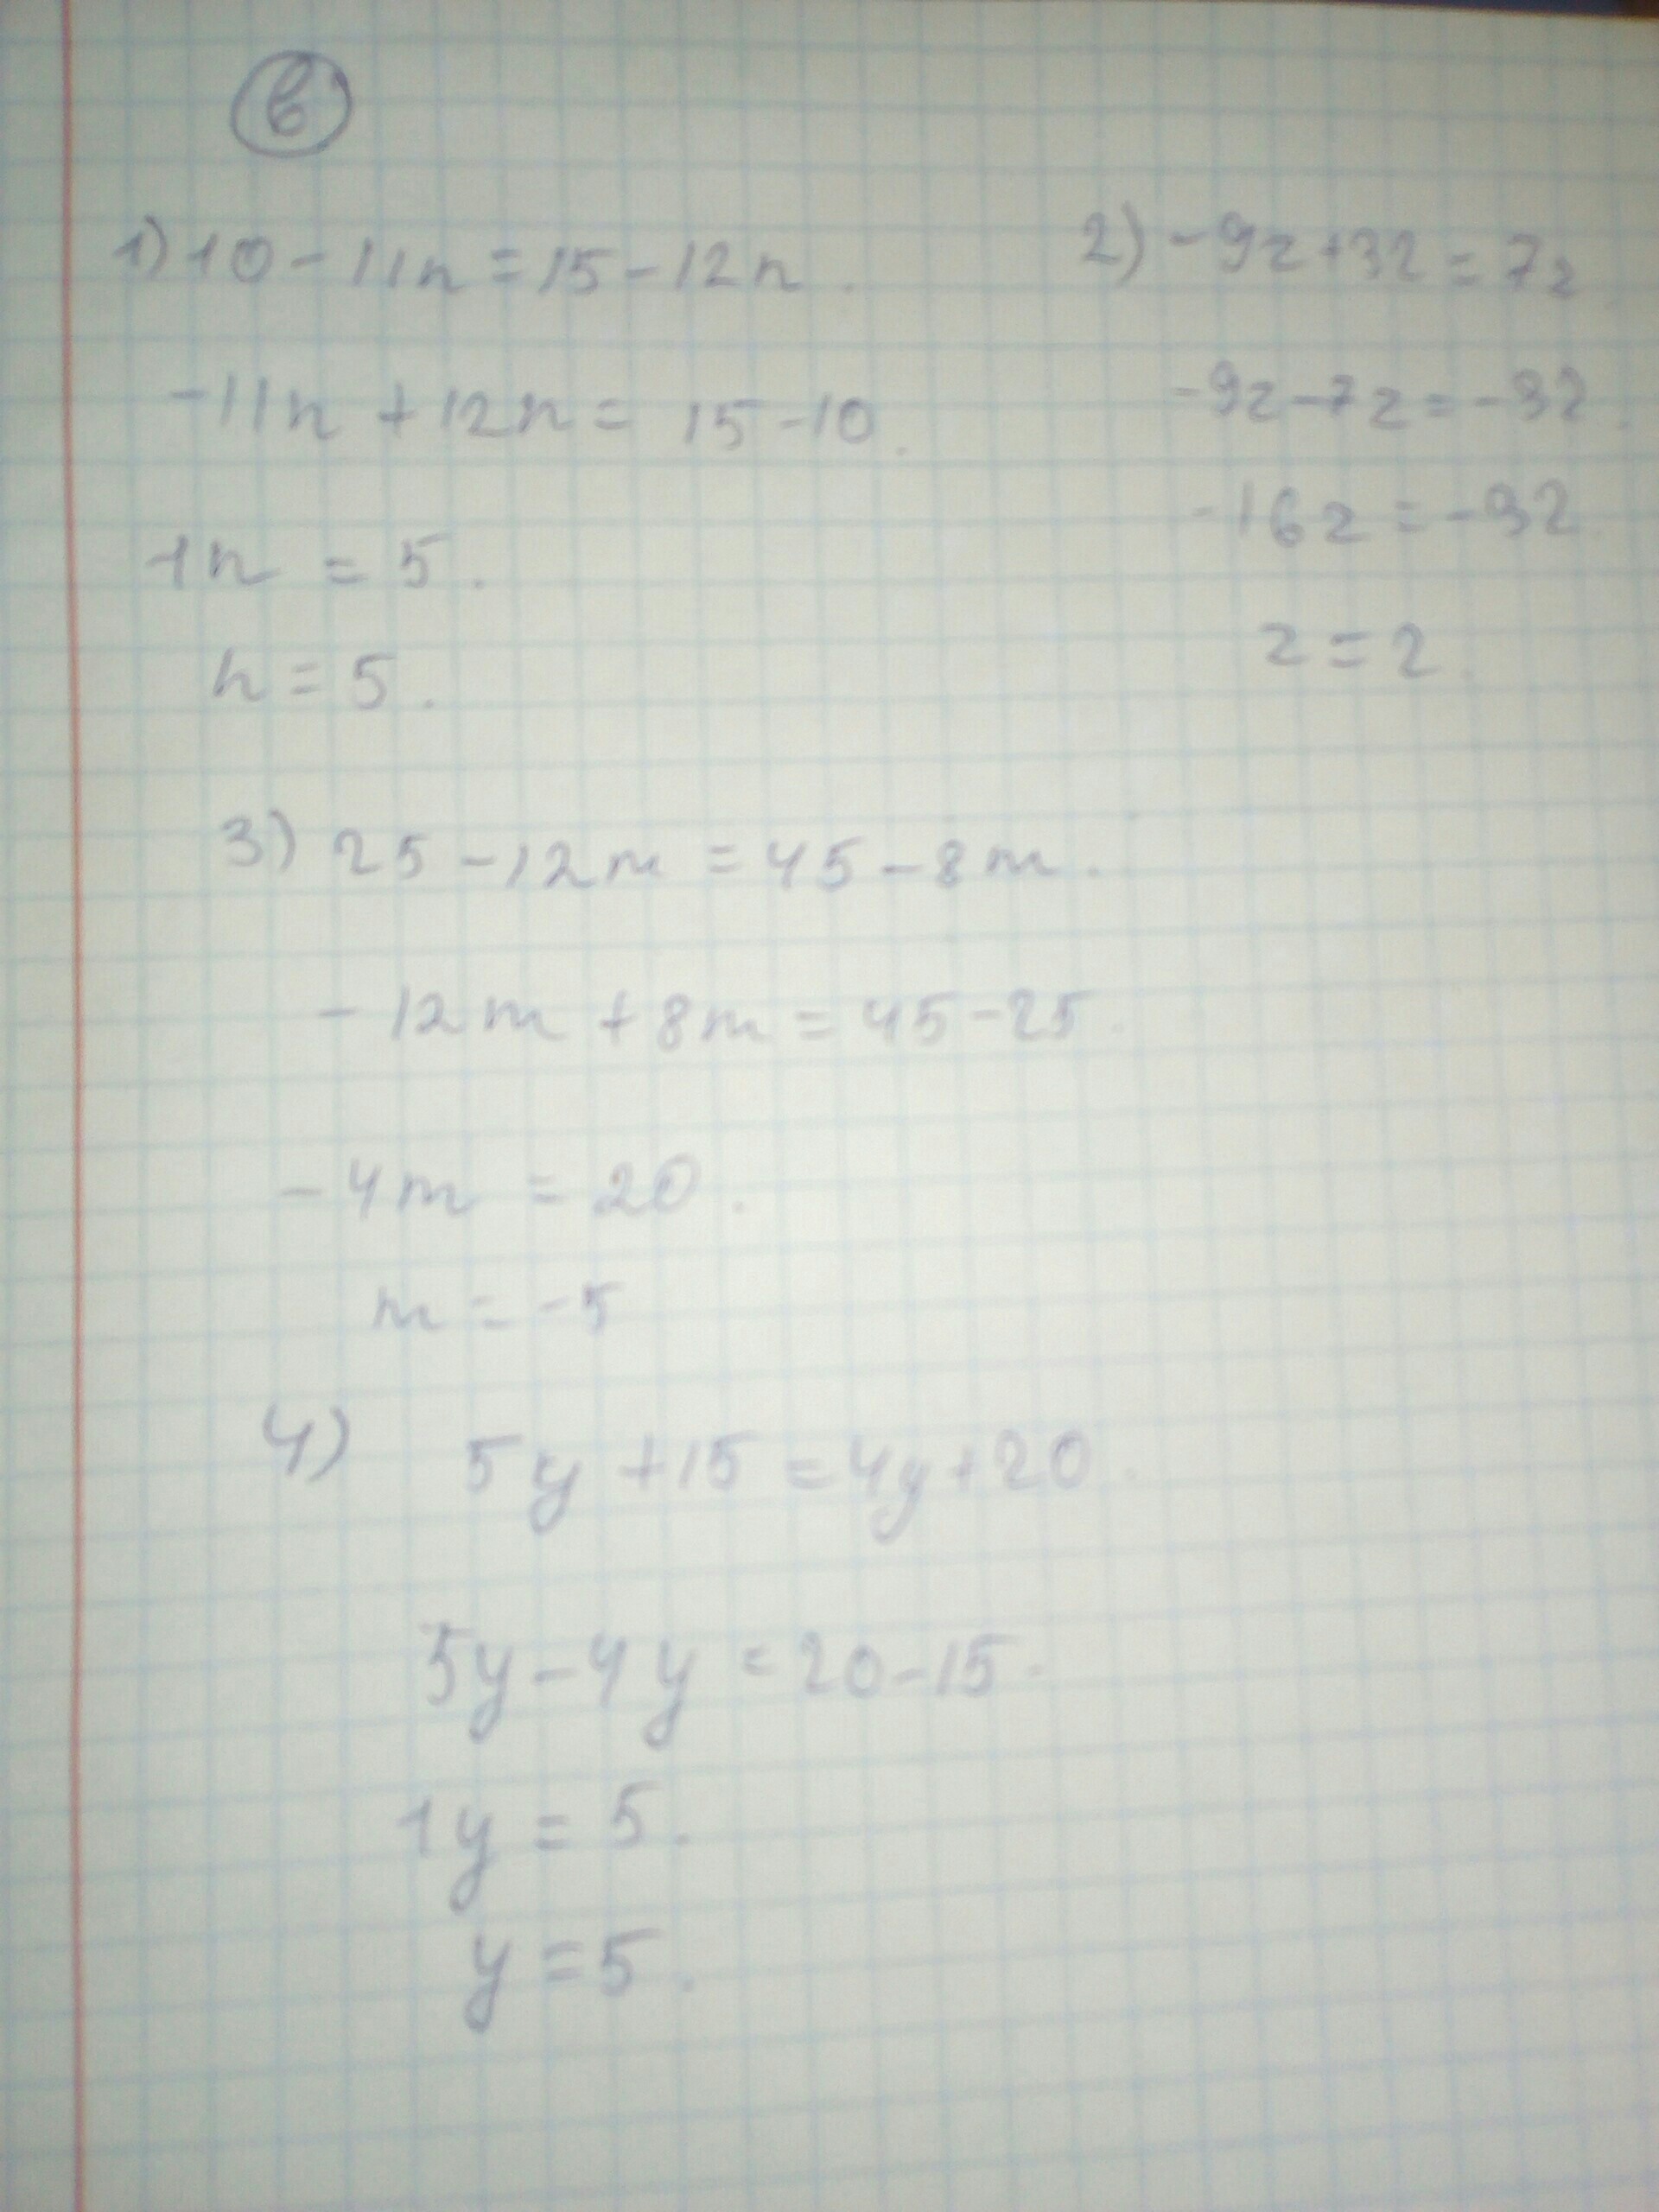 в
1) 10 - 11n = 15 - 12n.
-11n + 12n = 15 - 10.
1n = 5.
n = 5.
2) -9z + 32 = 7z
-9z - 7z = -32.
-16z = -32.
z = 2.
3) 25 - 12m = 45 - 8m.
-12m + 8m = 45 - 25.
-4m = 20.
m = -5
4) 5y + 15 = 4y + 20.
5y - 4y = 20 - 15.
1y = 5.
y = 5.